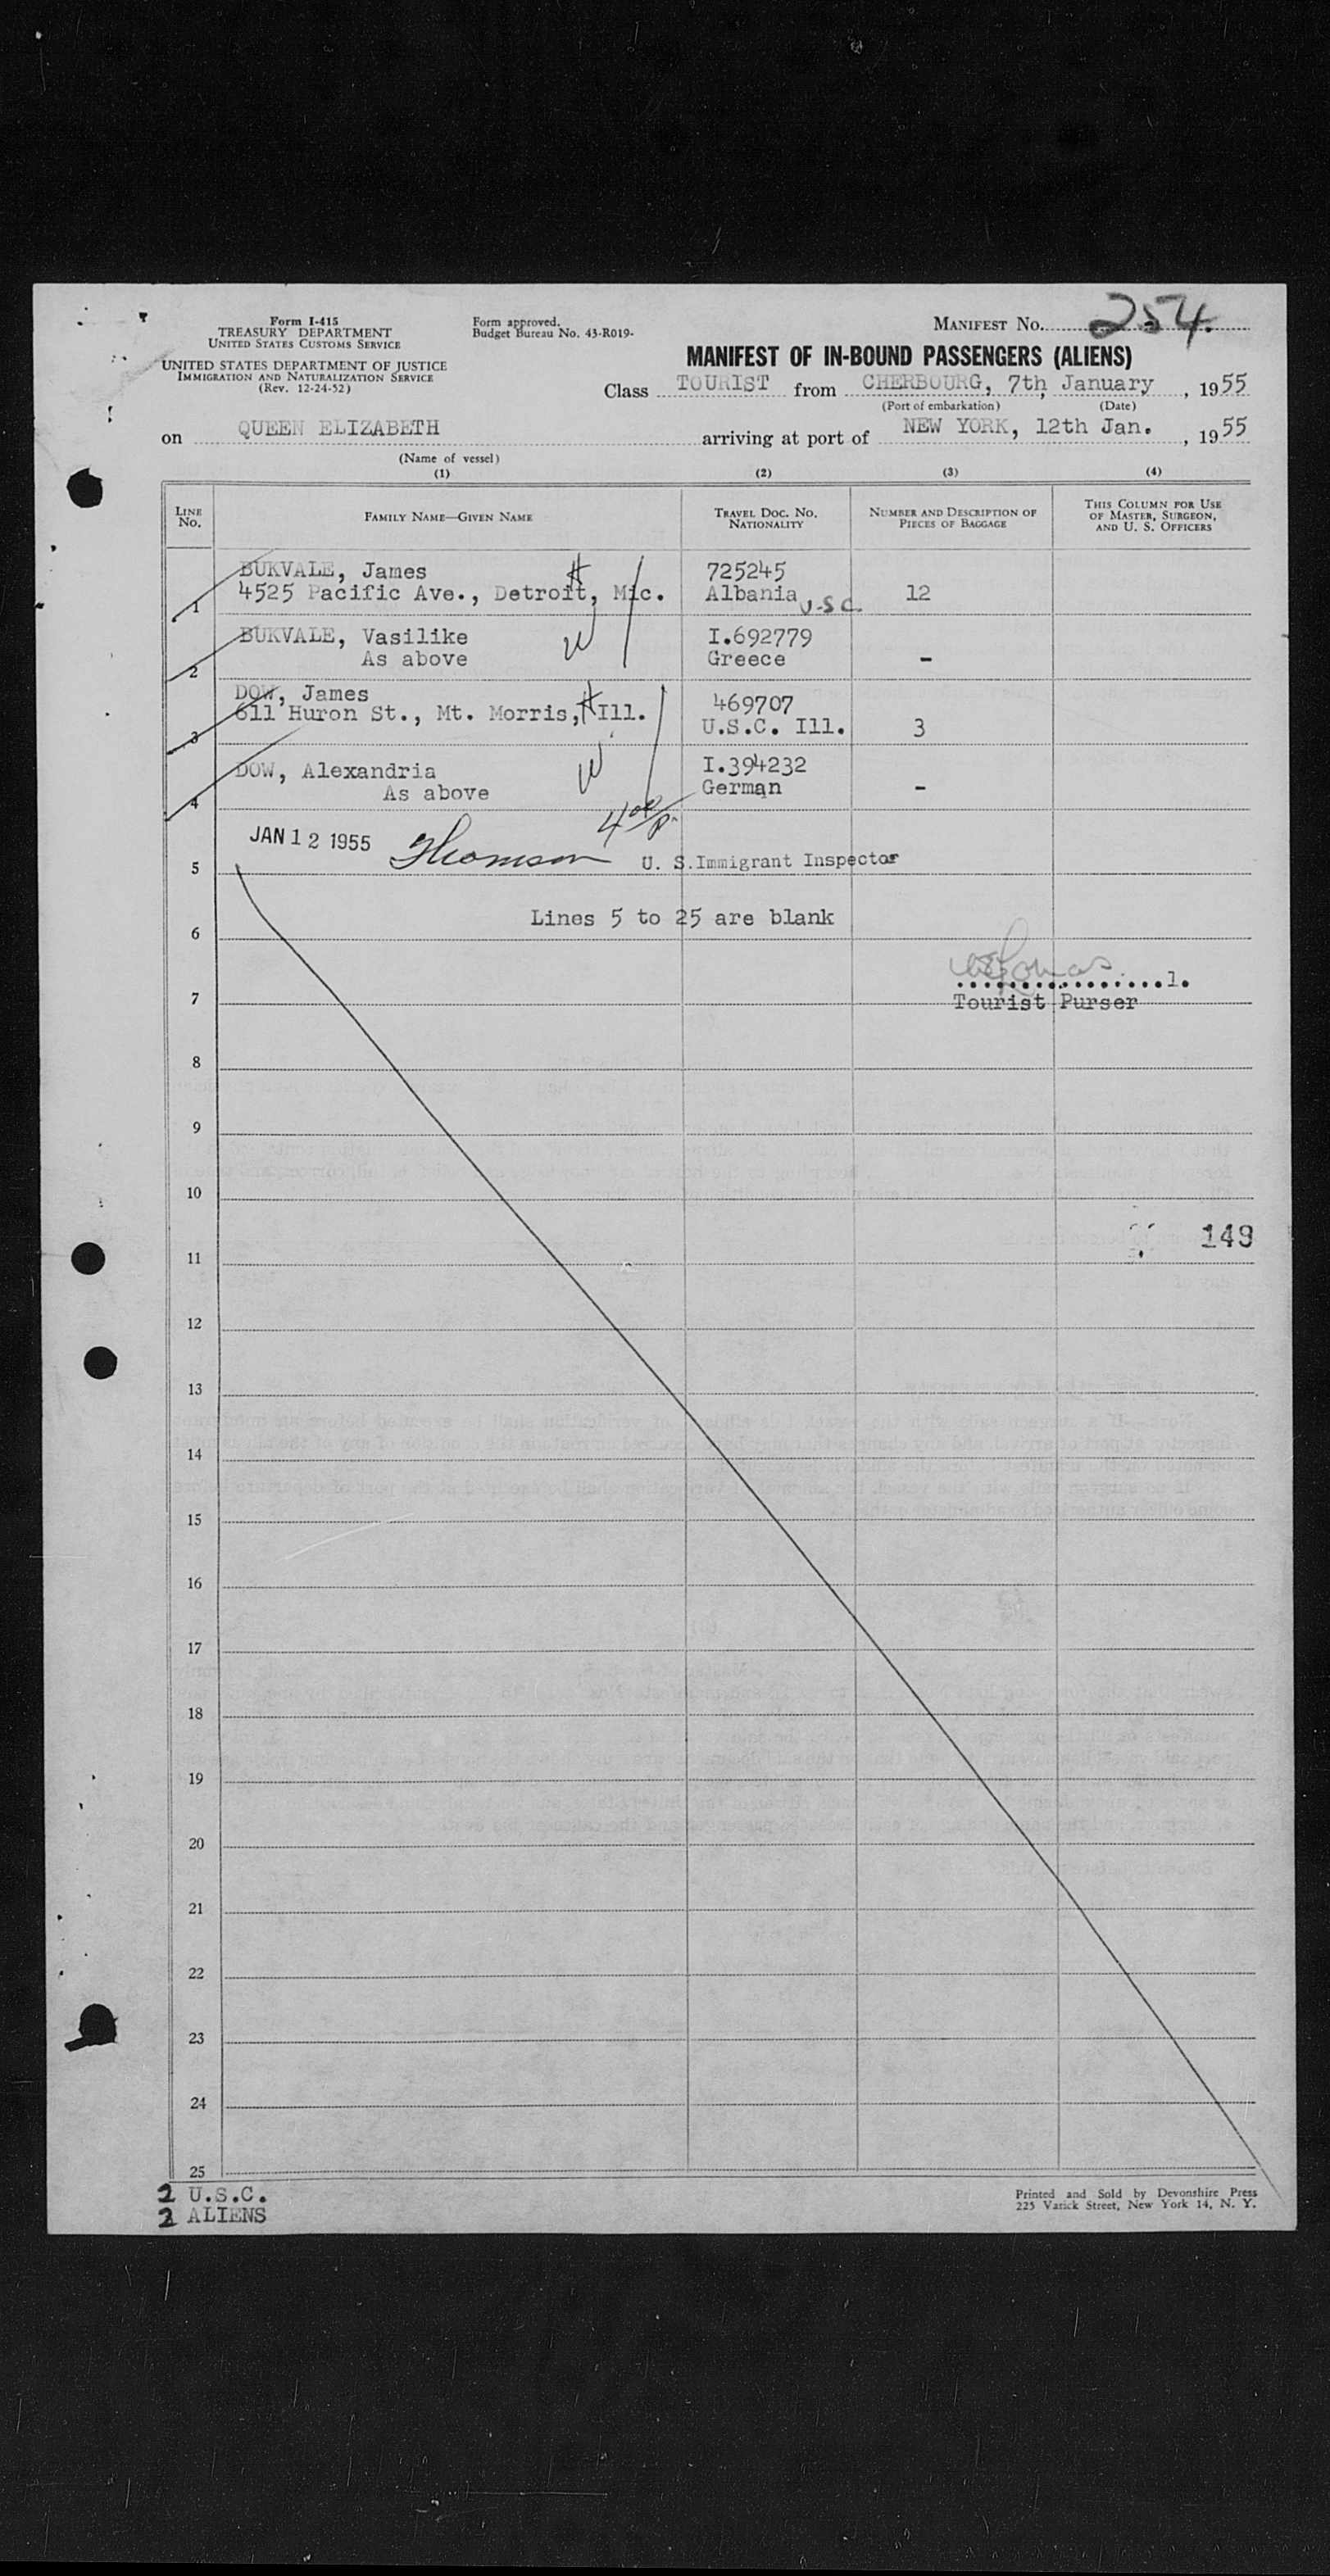 Form I-415
TREASURY DEPARTMENT
UNITED STATES CUSTOMS SERVICE
UNITED STATES DEPARTMENT OF JUSTICE
IMMIGRATION AND NATURALIZATION SERVICE
(Rev. 12-24-52)
Form approved.
Budget Bureau No. 43-R019-
MANIFEST NO. 254
MANIFEST OF IN-BOUND PASSENGERS (ALIENS)
Class TOURIST from CHERBOURG, 7th, January, 1955
(Port of embarkation) (Date)
on QUEEN ELIZABETH arriving at port of NEW YORK, 12th Jan., 1955
(Name of vessel)
(1) (2) (3) (4)
LINE NO. FAMILY NAME—GIVEN NAME TRAVEL DOC. NO. NATIONALITY NUMBER AND DESCRIPTION OF PIECES OF BAGGAGE THIS COLUMN FOR USE OF MASTER, SURGEON, AND U. S. OFFICERS
BUKVALE, James H 725245
1 4525 Pacific Ave., Detroit, Mic. Albania U.S.C. 12
BUKVALE, Vasilike W I.692779
2 As above Greece -
DOW, James H 469707
3 611 Huron St., Mt. Morris, Ill. U.S.C. Ill. 3
DOW, Alexandria W I.394232
4 As above German -
JAN 12 1955 Thomson U. S. Immigrant Inspector
5
Lines 5 to 25 are blank
6
1.
7 Tourist Purser
8
9
10
149
11
12
13
14
15
16
17
18
19
20
21
22
23
24
25
2 U.S.C.
2 ALIENS
Printed and Sold by Devonshire Press
225 Varick Street, New York 14, N. Y.